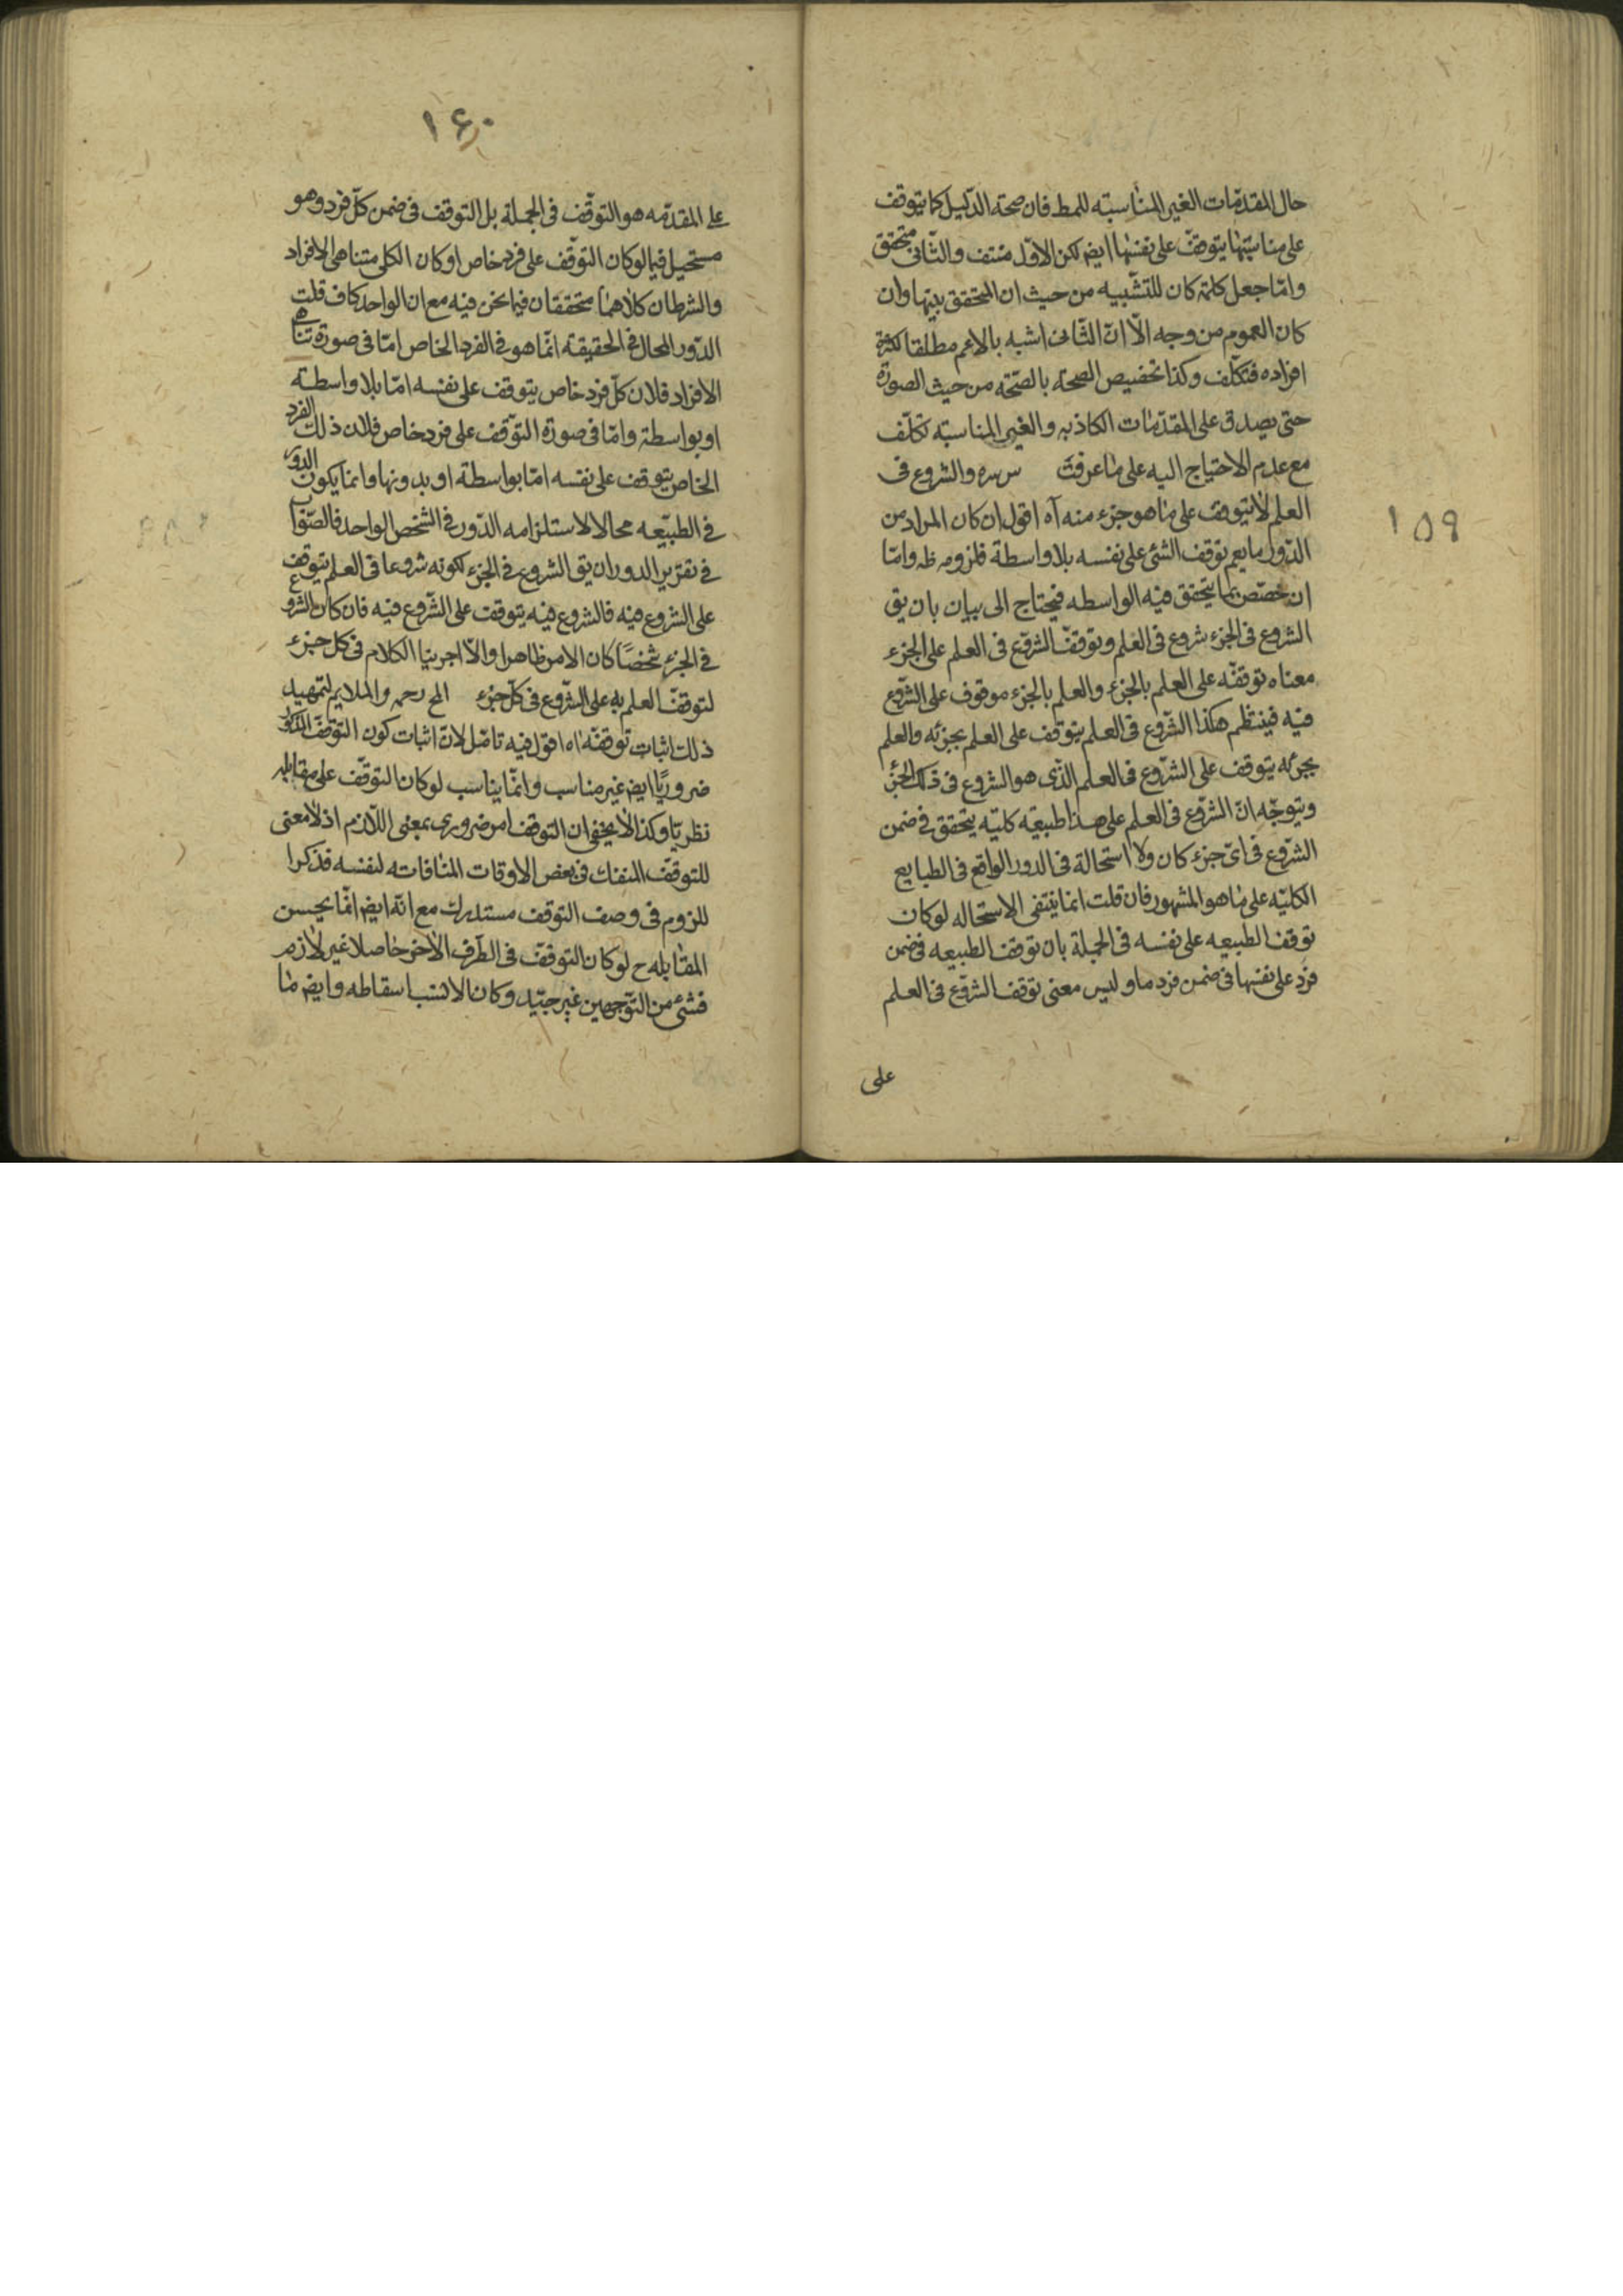 ١٥٩
حال المقدّمات الغير المناسبته للمط فان صحة الدّليل كما يتوقف
على مناسبتها يتوقّف على نفسها ايضه لكن الاوّل منتف والثّانى متحقق
وامّا جعل كلمة كان للتشبيه من حيث ان المحقق بينها وان
كان العموم من وجه الّا انّ الثّانى اشبه بالاعم مطلقا لكثرة
افراده فتكلّف وكذا تخصيص الصحة بالصّحة من حيث الصورة
حتى يصدق على المقدّمات الكاذبه والغير المناسبته تكلّف
مع عدم الاحتياج اليه على ما عرفت والشروع فى
العلم لا يتوقف على ما هو جزء منه آه اقول ان كان المراد من
الدّور ما يعم توقف الشئ على نفسه بلا واسطة فلزومه ظه وامّا
ان خصّص بما يتحقق فيه الواسطه فيحتاج الى بيان بان يق
الشروع فى الجزء شروع فى العلم وتوقّف الشرّوع فى العلم على الجزء
معناه توقفّه على العلم بالجزء والعلم بالجزء موقوف على الشرّوع
فيه فينتظم هكذا الشرّوع فى العلم يتوقف على العلم بجزئه والعلم
بجزئه يتوقف على الشرّوع فى العلم الذّى هو الشروع فى ذلك الجزء
ويتوجّه انّ الشرّوع فى العلم على هذا طبيعة كليّه يتحقق فى ضمن
الشرّوع فى اىّ جزء كان ولا استحالة فى الدور الواقع فى الطبايع
الكليّه على ما هو المشهور فان قلت انما ينتفى الاستحاله لوكان
توقف الطبيعه على نفسه فى الجملة بان توقف الطبيعه فى ضمن
فرد على نفسها فى ضمن فرد ما وليس معنى توقف الشرّوع فى العلم
على
١٦٠
على المقدّمه هو التوقّف فى الجملة بل التوقف فى ضمن كلّ فرد وهو
مستحيل فيما لوكان التوقّف على فرد خاص او كان الكلى متناهى الافراد
والشرطان كلاهما متحققان فيما نحن فيه مع ان الواحد كاف قلت
الدّور المحال فى الحقيقة انّما هو فى الفرد الخاص امّا فى صورة تناهى
الافراد فلان كلّ فرد خاص يتوقف على نفسه امّا بلا واسطة
او بواسطة وامّا فى صورة التوّقف على فرد خاص فلان ذلك الفرد
الخاص يتوقف على نفسه امّا بواسطة او بدونها وانما يكون الدور
فى الطبيّعه محالا لاستلزامه الدّور فى الشخص الواحد فالصّواب
فى تقرير الدور ان يق الشروع فى الجزء لكونه شروعا فى العلم يتوقف
على الشروع فيه فالشروع فيه يتوقف على الشّروع فيه فان كان الشروع
فى الجزء شخصًا كان الامر ظاهرا والّا اجرينا الكلام فى كل جزء
لتوقف العلم به على الشرّوع فى كلّ جزء رحمه والملايم لتمهيد
ذلك اثبات توقفّه اه اقول فيه تامّل لانّ اثبات كون التوقف المذكور
ضروريّا ايضه غير مناسب وانّما يناسب لوكان التوقّف على مقابله
نظريّا وكذا لا يخفى ان التوقف امر ضرورى بمعنى اللّازم اذ لا معنى
للتوقّف المنفك فى بعض الاوقات المنافاته لنفسه فذكر ا
للزوم فى وصف التوقف مستدرك مع انّه ايضه انّما يحسن
المقابله ح لوكان التوقفّ فى الطّرف الاخر حاصلا غير لازم
فشئ من التوّجهين غير جيّد وكان الانسب اسقاطه وايضه ما